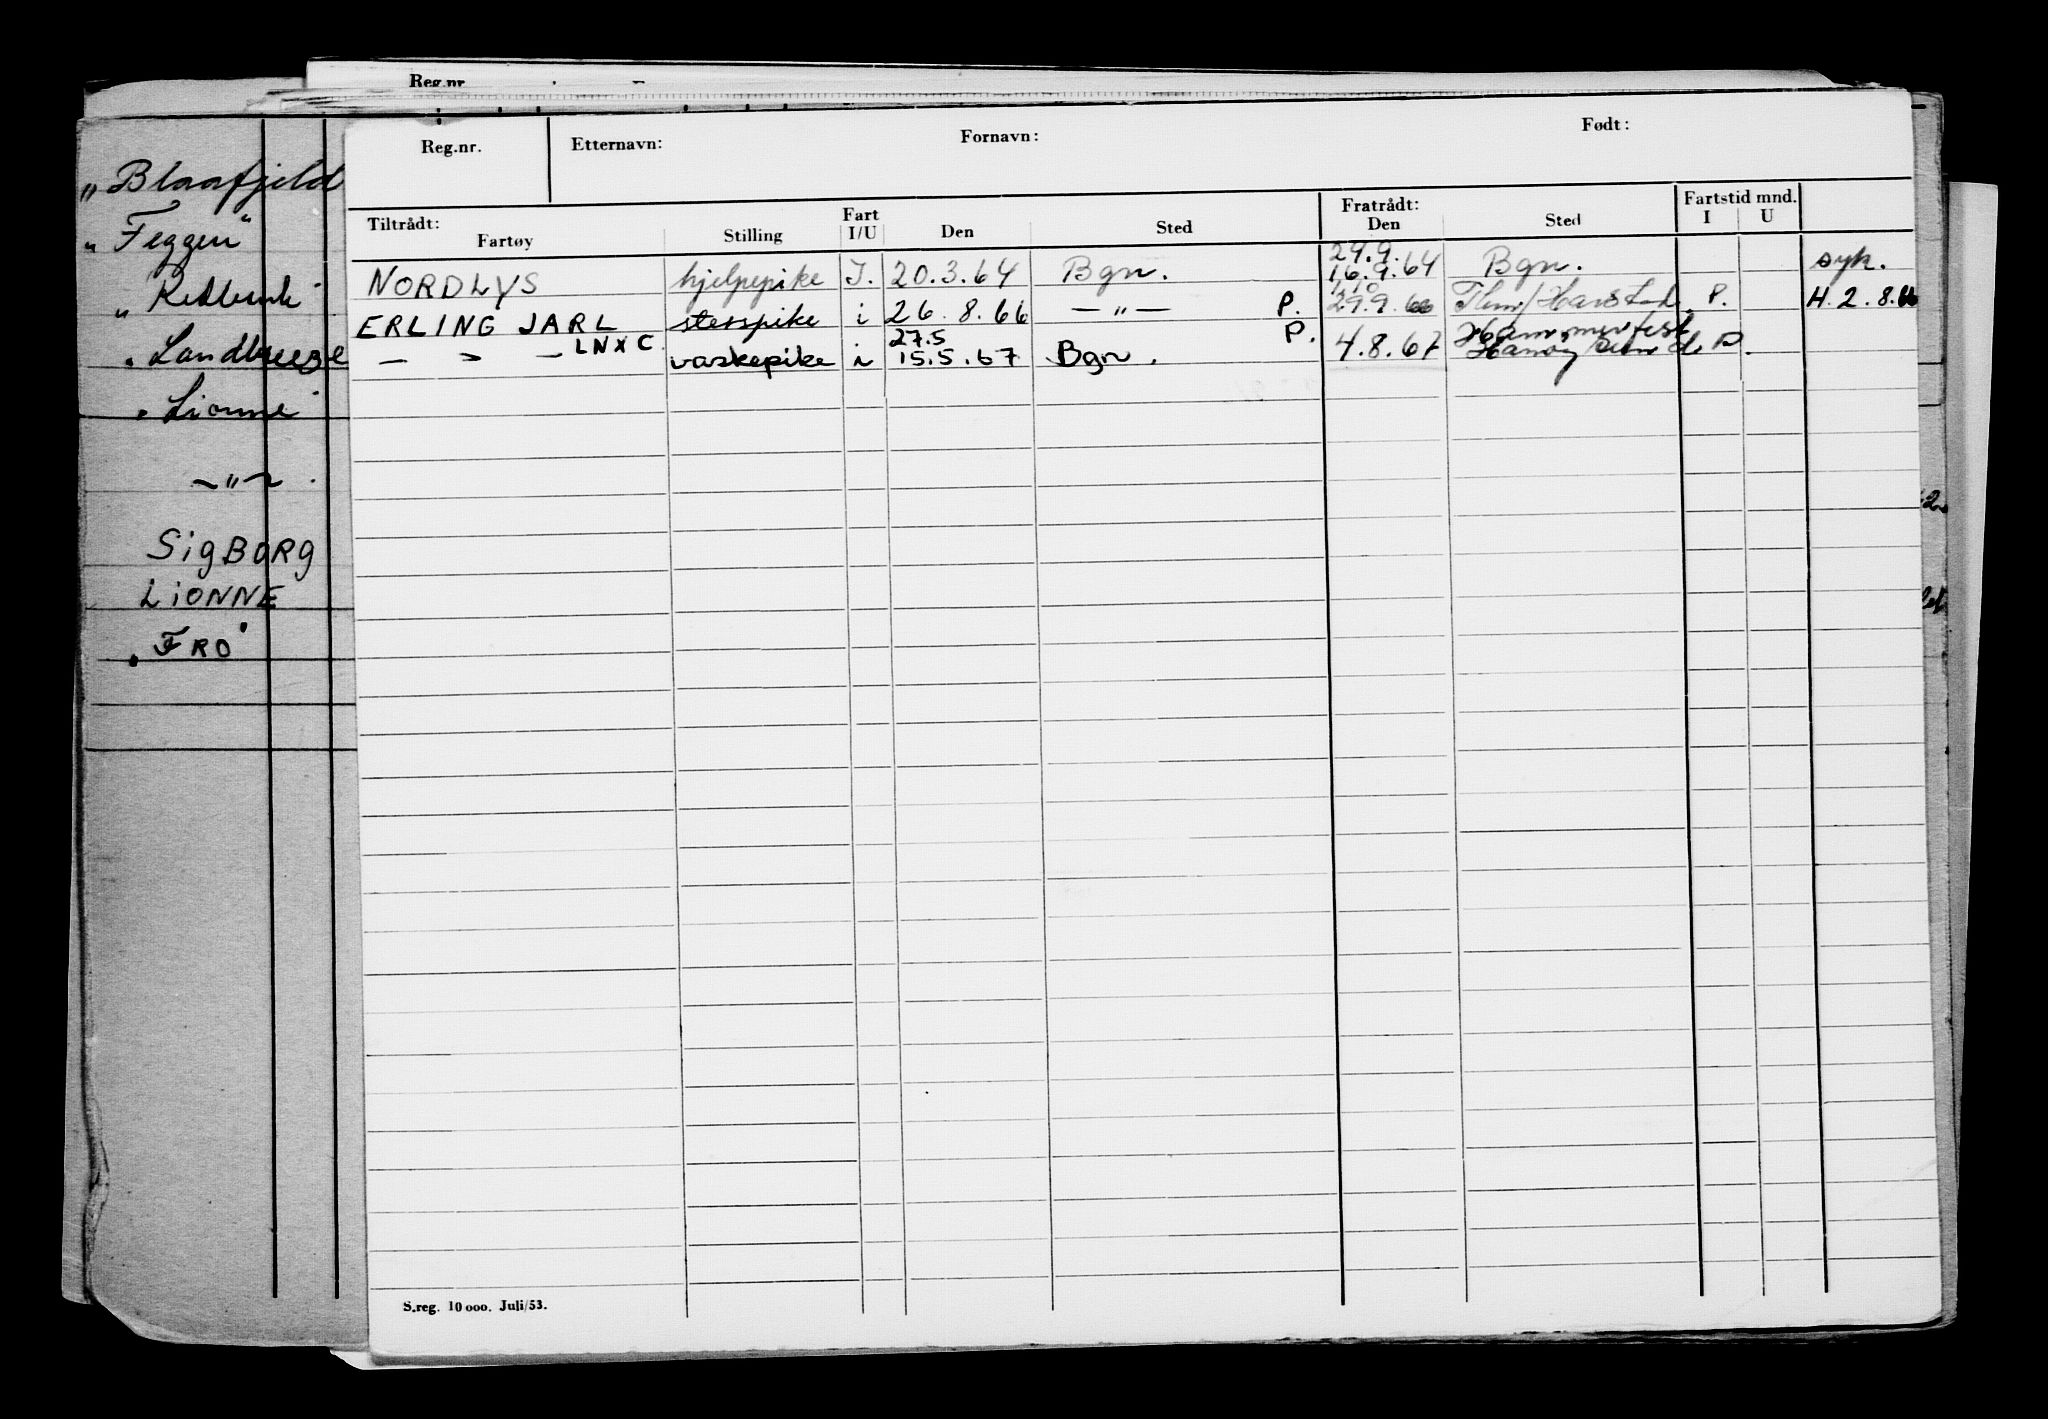 Reg.nr.
Reg.nr. Etternavn: Fornavn: Født:
Tiltrådt: Fartøy Stilling Fart I/U Den Sted Fratrådt: Den Sted Fartstid mnd. I U
29.9.
NORDLYS hjelpepike I. 20.3.64 Bgn. 16.9.64 Bgn. syk.
ERLING JARL sterspike i 26.8.66 — " — P. 29.9.66 P. H. 2.8.66
LNXC 27.5 P. Hammerfest
— > — vaskepike i 15.5.67 Bgn. 4.8.67 P.
"Blaafjeld
"Feggen"
"
"Landbreeze
"Lionne"
— " — .
SigBORg
LiONNE
"FRO"
S.reg. 10 000. Juli/53.